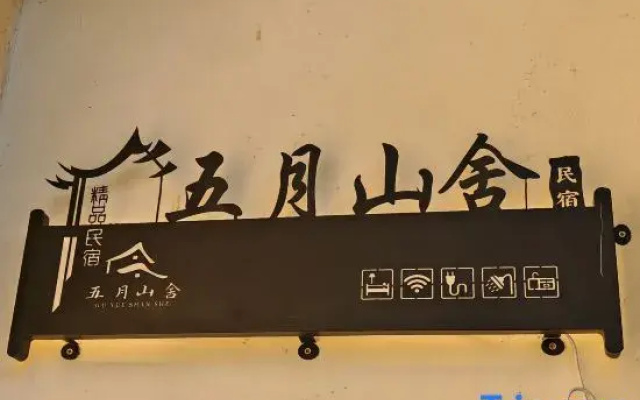 五月山舍
民宿
精品民宿
五月山舍
WU YUE SHAN SHE